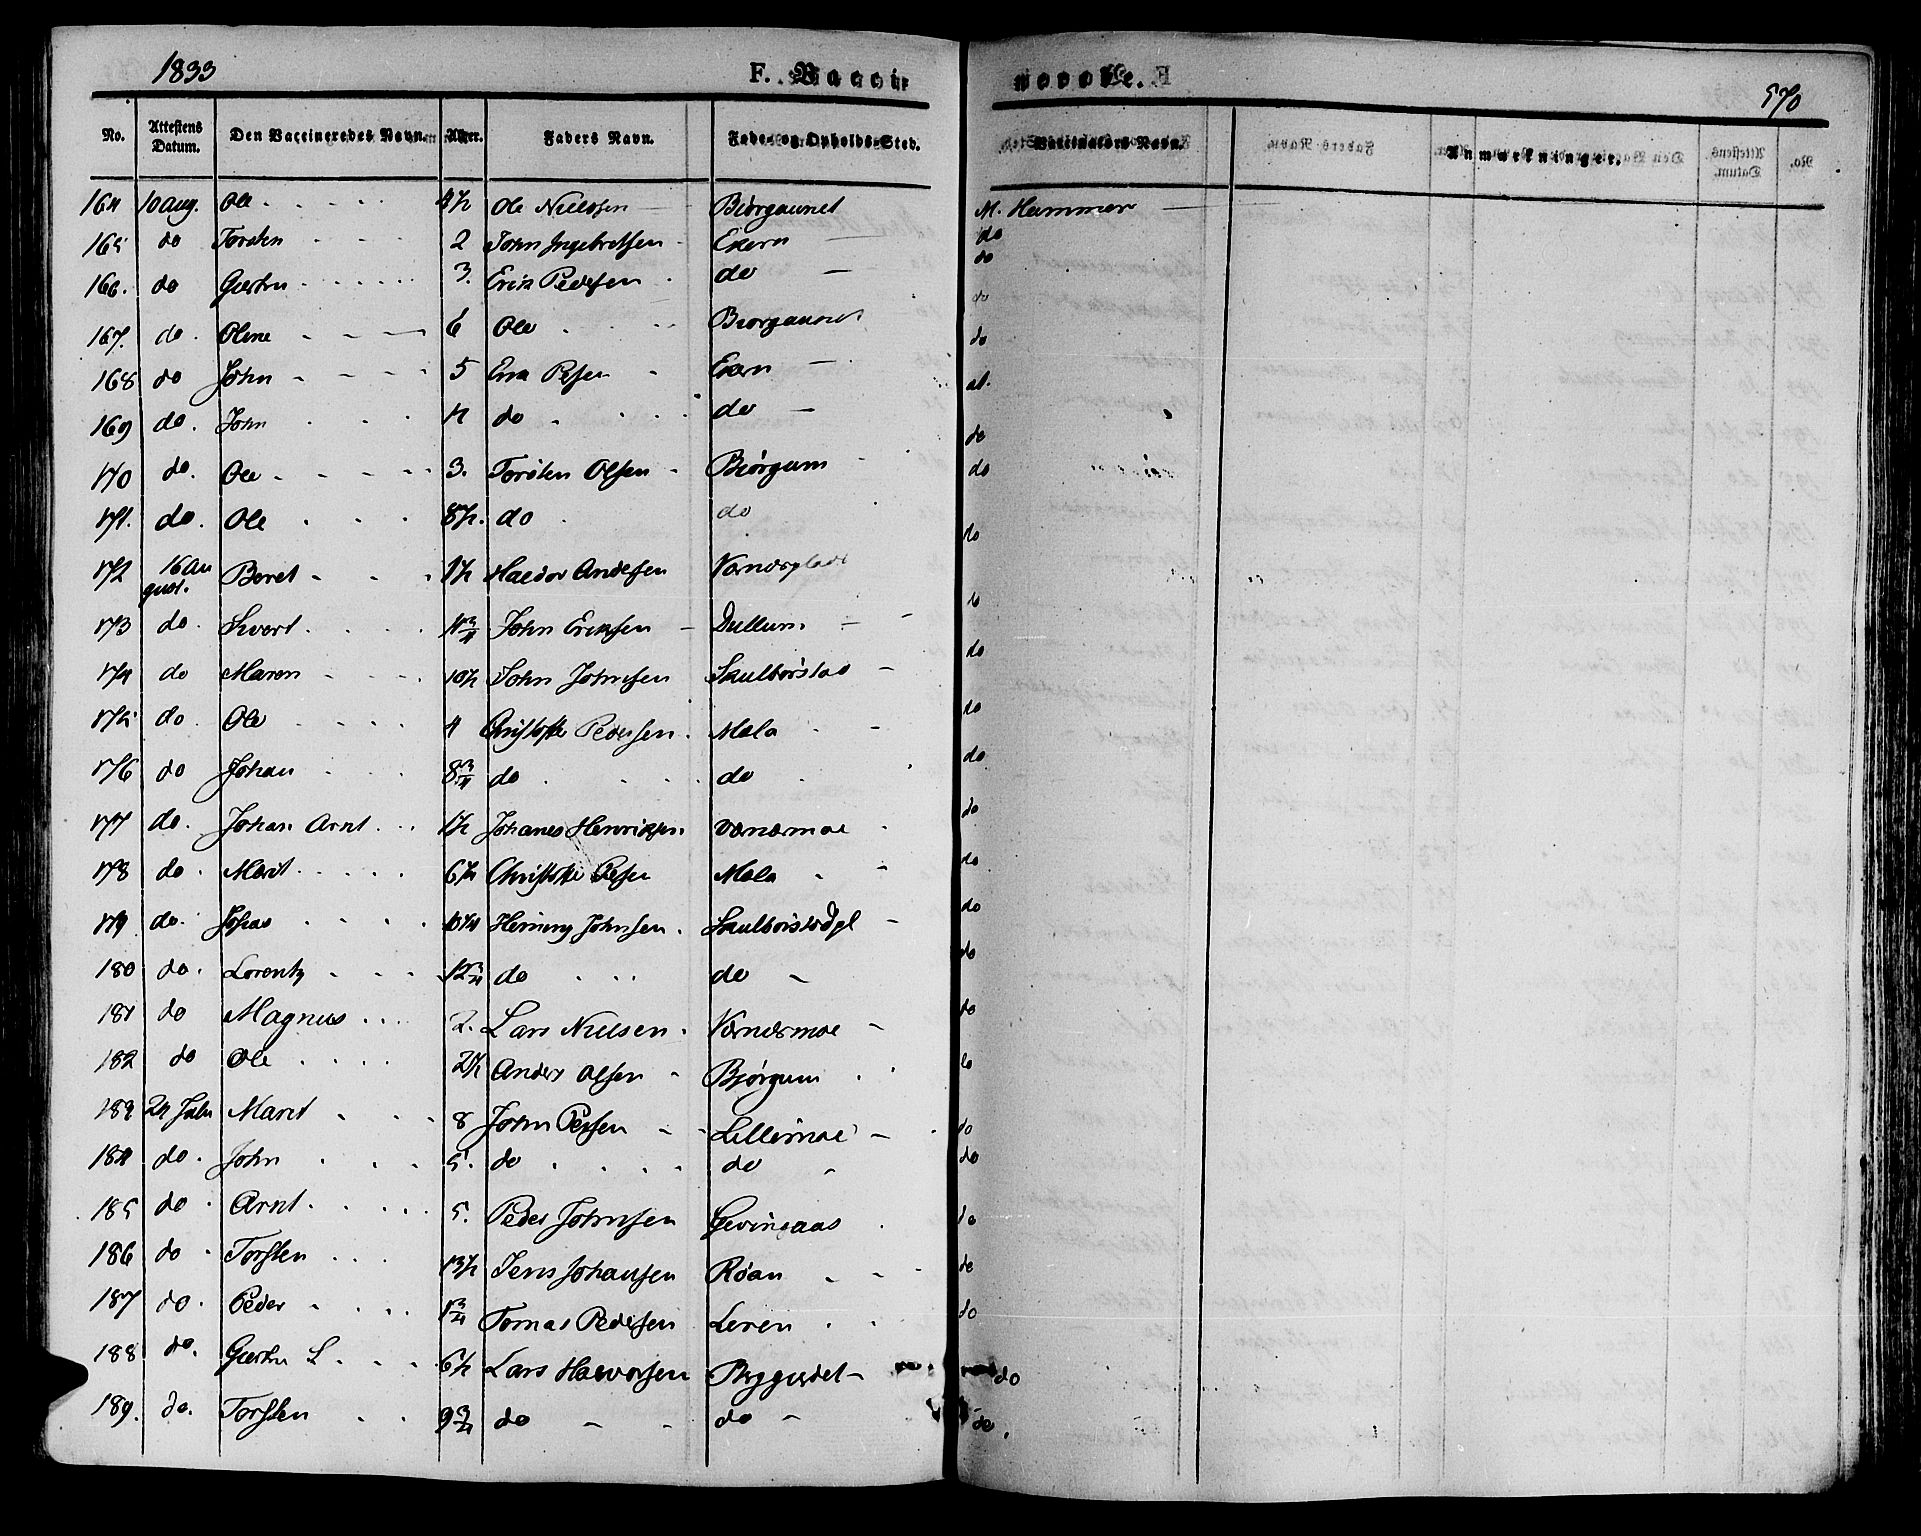 1833
F. Vaccinerede. F
570
No. Attestens Datum. Den Vaccineredes Navn. Alder. Faders Navn. Føde- og Opholds-Sted. Vaccinators Navn. Anmærkninger.
164 10 Aug. Ole Ole Nielssen Biørgaunet M. Hammer
165 do Torsten 2 John Ingebretsen Ekern do
166. do 3. Erik Pedersen do do
167. do. Olene 6 Ole Biorgaunet do
168 do John 5 Ekern
169 do. John 4 do do de
170 do. Ole 3. Torsten Olsen Biörgum do
171. do. Ole 8½. do do do
172 16 August. Beret 1½ Haldor Andersen
173 do. Sivert 1¾ John Eriksen Dullum
174 do Maren 10½ John Johnsen Skulbörstad do
175 do. Ole 4 Christoffer Pedersen Mæla do
176 do Johan 8¾ do do do
177 do. Johan Arnt 1½ Johanes Henriksen Værnæsmoe do
178 do. Marit 6½ Christoffer Persen Mæla do
179 do. Henning Johnsen do
180 do. Lorentz 12¾ do do do
181 do Magnus 2. Lars Nielsen Værnæsmoe do
182 do Ole 2½ Anders Olsen Bjørgum
183 Marit 8 John Persen Lillemoe do
184 do. John 5. do do do
185 do Arnt 5. Peder Johnsen Gevingaas do
186 do Torsten 13½ Jens Johansen Röan de
187 do. Peder 1¾ Tomas Pedersen Leren do
188 do. 6½ Lars Halvorsen do
189. do. Torsten 9¾ do do do.